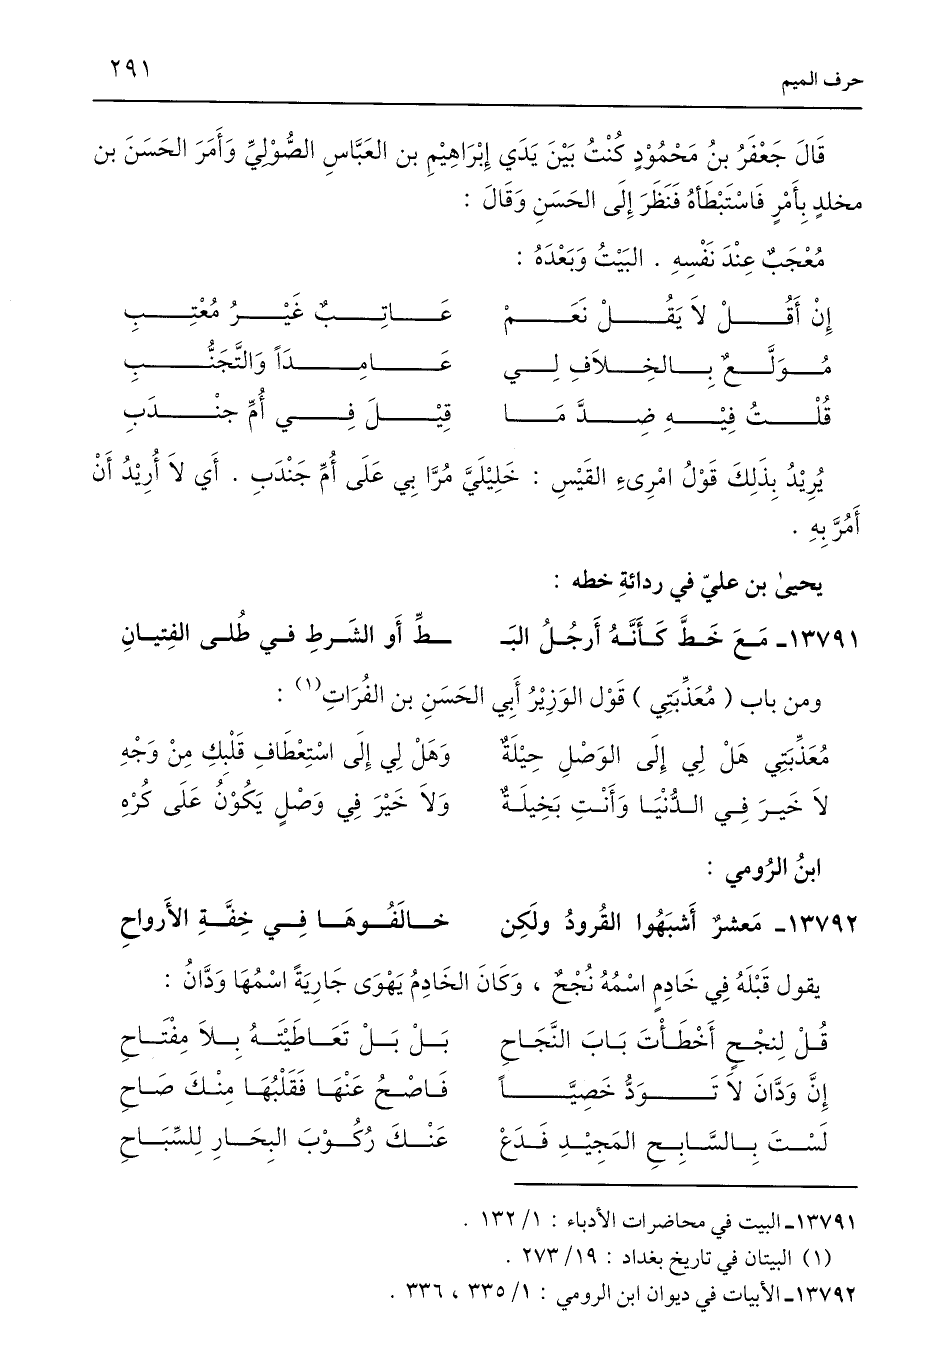 حرف الميم ٢٩١
قَالَ جَعْفَرُ بنُ مَحْمُوْدٍ كُنْتُ بَيْنَ يَدَي إِبْرَاهِيْمِ بن العَبَّاسِ الصُّوْلِيِّ وَأَمَرَ الحَسَنَ بن
مخلدٍ بِأَمْرٍ فَاسْتَبْطَأهُ فَنَظَرَ إِلَى الحَسَنِ وَقَالَ :
مُعْجَبٌ عِنْدَ نَفْسِهِ . البَيْتُ وَبَعْدَهُ :
إِنْ أَقُـــلْ لاَ يَقُـــلْ نَعَـــمْ عَـــاتِـــبٌ غَيْـــرُ مُعْتِـــبِ
مُـــوَلَّـــعٌ بِـــالخِـــلاَفِ لِـــي عَـــامِـــدَاً وَالتَّجَنُّـــبِ
قُلْـــتُ فِيْـــهِ ضِـــدَّ مَـــا قِيْـــلَ فِـــي أُمِّ جنْـــدَبِ
يُرِيْدُ بِذَلِكَ قَوْلُ امْرِىءِ القَيْسِ : خَلِيْلَيَّ مُرَّا بِي عَلَى أُمِّ جَنْدَبِ . أَي لاَ أُرِيْدُ أَنْ
أَمُرَّ بِهِ .
يحيىٰ بن عليّ في ردائةِ خطه :
١٣٧٩١ـ مَعَ خَطَّ كَأَنَّهُ أَرجُلُ البَـ ـطِّ أَو الشَرطِ في طُلى الفِتيانِ
ومن باب ( مُعَذِّبَتِي ) قَوْل الوَزِيْرُ أَبِي الحَسَنِ بن الفُرَاتِ(١) :
مُعَذِّبَتِي هَلْ لِي إِلَى الوَصْلِ حِيْلَةٌ وَهَلْ لِي إِلَى اسْتِعْطَافِ قَلْبِكِ مِنْ وَجْهِ
لاَ خَيرَ فِي الدُّنْيَا وَأَنْتِ بَخِيلَةٌ وَلاَ خَيْرَ فِي وَصْلٍ يَكُوْنُ عَلَى كُرْهِ
ابنُ الرُومي :
١٣٧٩٢ـ مَعشرٌ أَشبَهُوا القُرودُ ولَكِن خـالَفُـوهَـا فِـي خِفَّـةِ الأَرواحِ
يقول قَبْلَهُ فِي خَادِمٍ اسْمُهُ نُجْحٌ ، وَكَانَ الخَادِمُ يَهْوَى جَارِيَةً اسْمُهَا وَدَّانُ :
قُـلْ لِنجْـحٍ أَخْطَأْتَ بَـابَ النَّجَاحِ بَـلْ بَـلْ تَعَـاطَيْتَـهُ بِـلاَ مِفْتَـاحِ
إِنَّ وَدَّانَ لاَ تَـــوَدُّ خَصِيَّـــاً فَـاصْـحُ عَنْهَـا فَقَلْبُهَـا مِنْـكَ صَـاحِ
لَسْـتَ بِـالسَّـابِـحِ المَجِيْـدِ فَـدَعْ عَنْـكَ رُكُـوْبَ البِحَـارِ لِلسِّبَـاحِ
١٣٧٩١ـ البيت في محاضرات الأدباء : ١/ ١٣٢ .
(١) البيتان في تاريخ بغداد : ١٩/ ٢٧٣ .
١٣٧٩٢ـ الأبيات في ديوان ابن الرومي : ١/ ٣٣٥ ، ٣٣٦ .